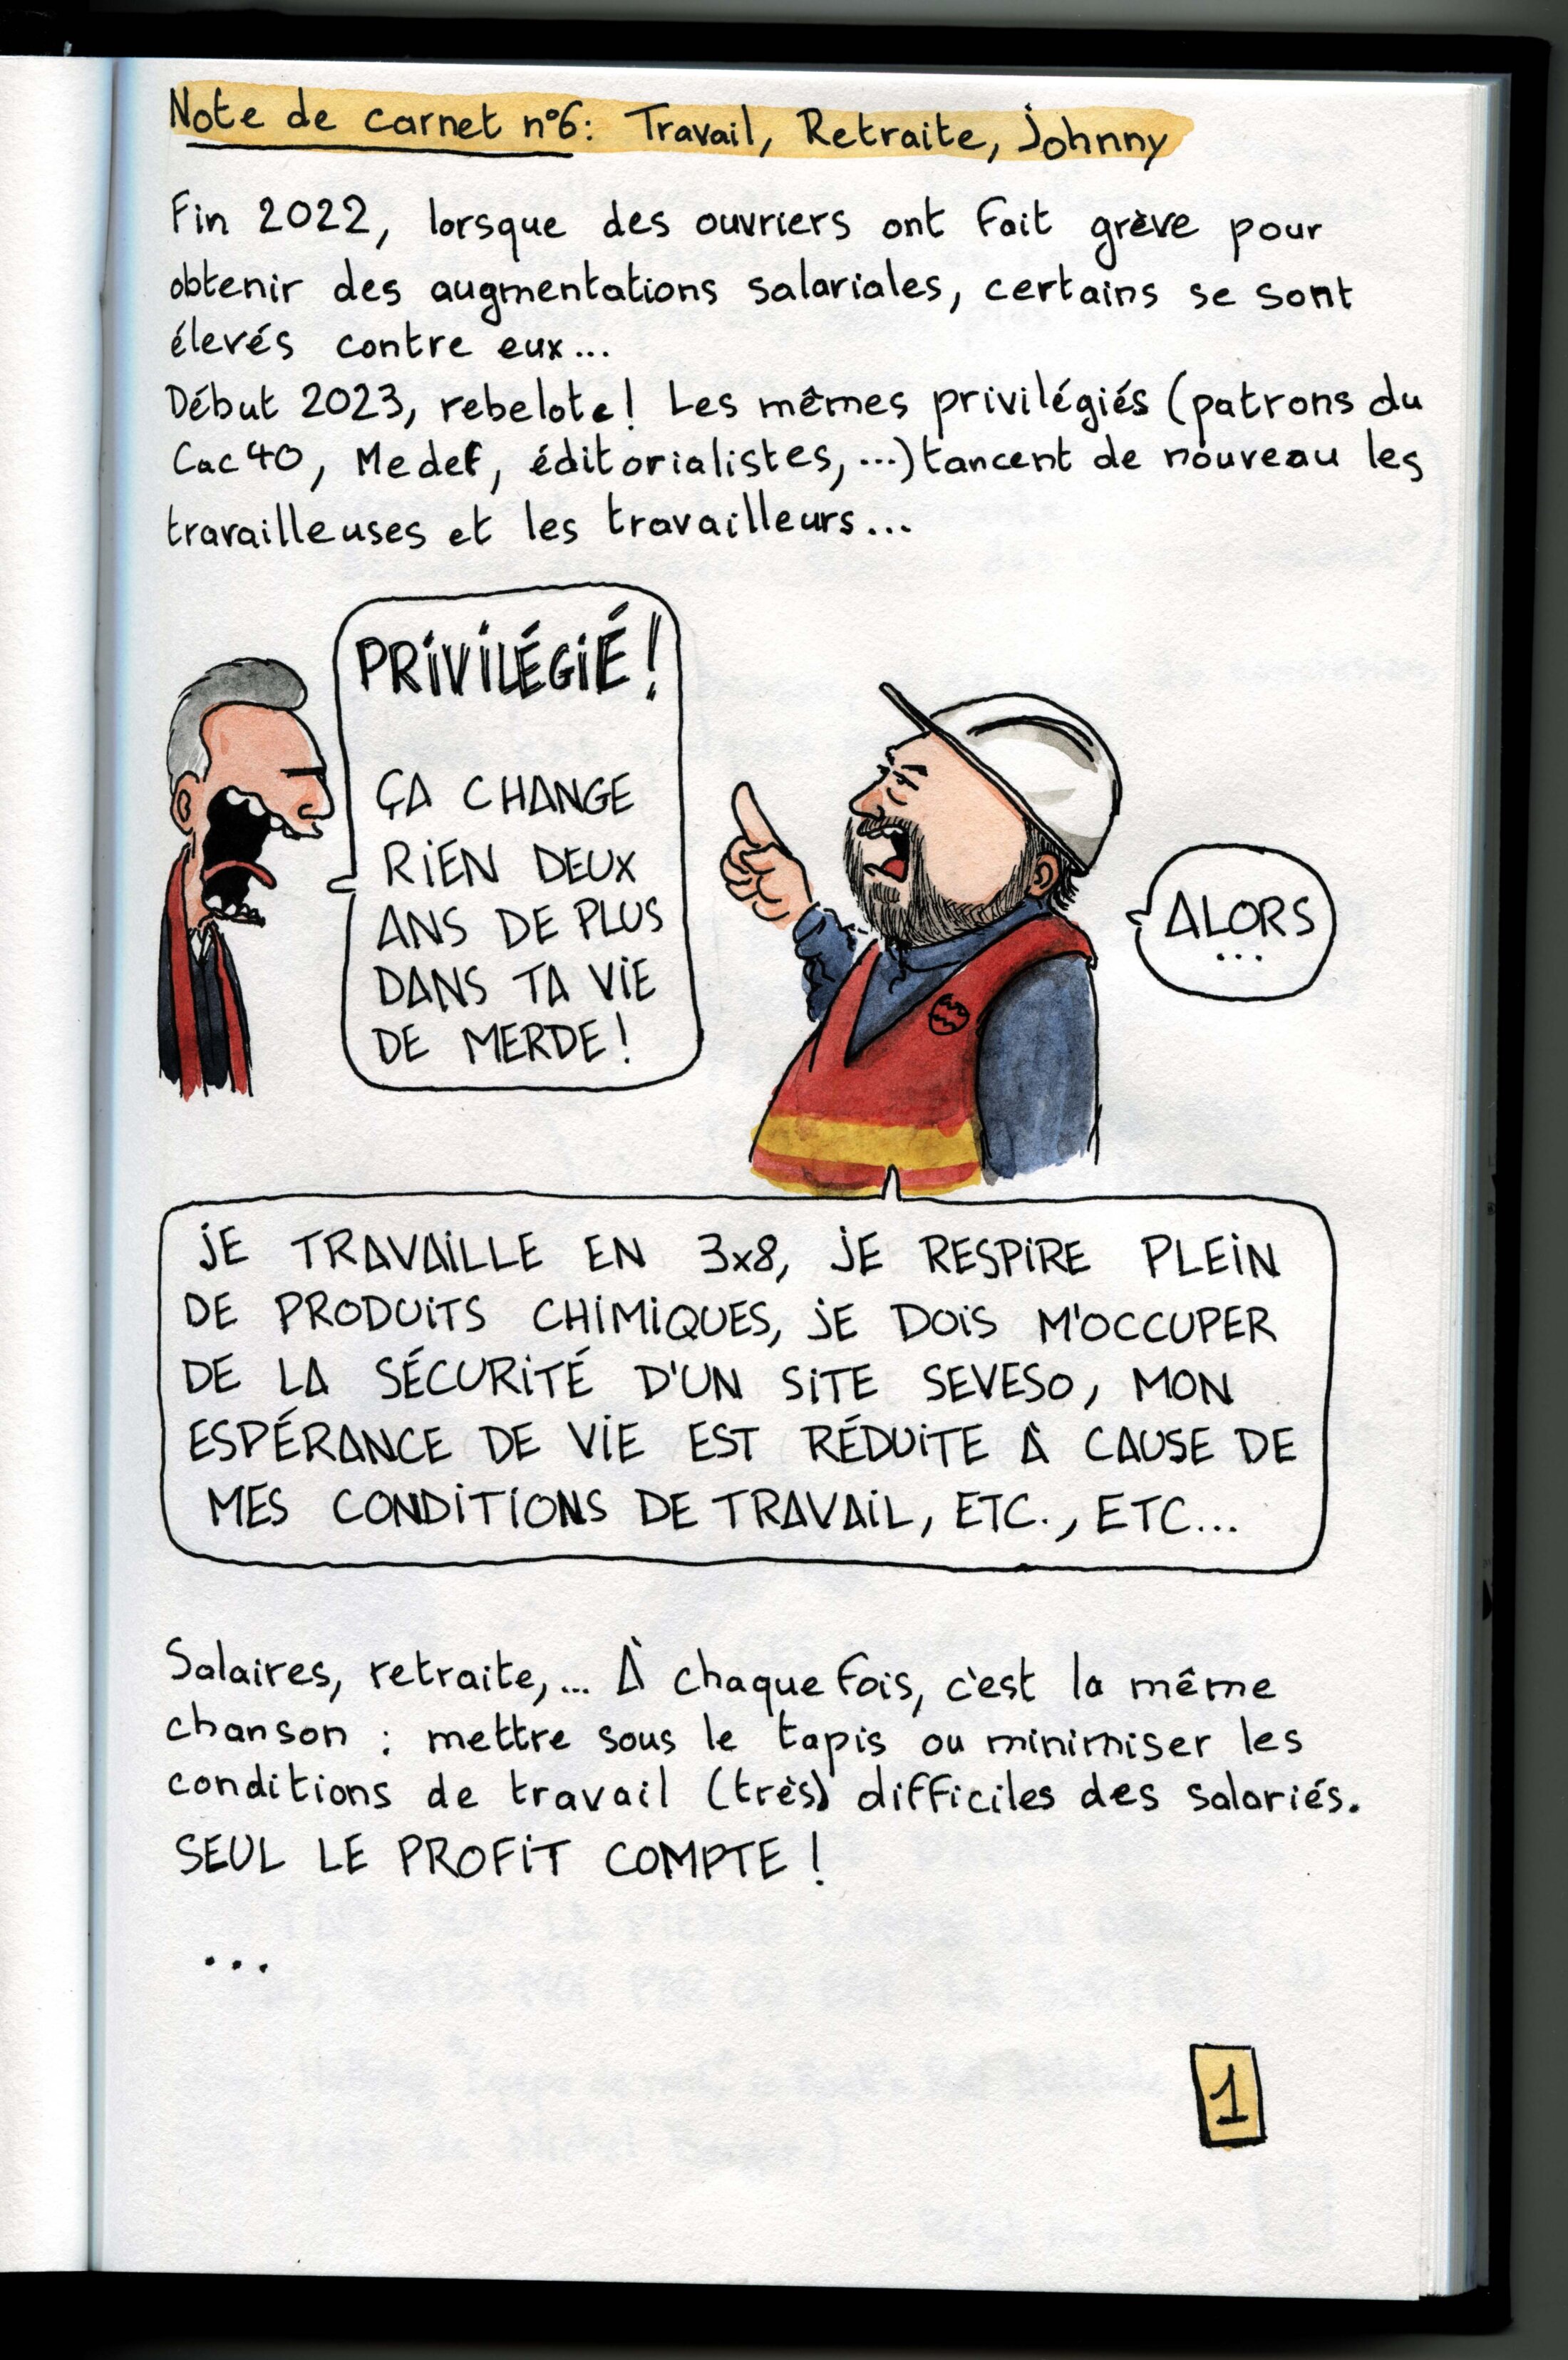 Note de carnet n°6: Travail, Retraite, Johnny
Fin 2022, lorsque des ouvriers ont fait grève pour
obtenir des augmentations salariales, certains se sont
élevés contre eux...
Début 2023, rebelote! Les mêmes privilégiés (patrons du
Cac 40, Medef, éditorialistes, ...) tancent de nouveau les
travailleuses et les travailleurs...
PRIVILÉGIÉ!
ÇA CHANGE
RIEN DEUX
ANS DE PLUS
DANS TA VIE
DE MERDE!
ALORS
...
JE TRAVAILLE EN 3x8, JE RESPIRE PLEIN
DE PRODUITS CHIMIQUES, JE DOIS M'OCCUPER
DE LA SÉCURITÉ D'UN SITE SEVESO, MON
ESPÉRANCE DE VIE EST RÉDUITE À CAUSE DE
MES CONDITIONS DE TRAVAIL, ETC., ETC...
Salaires, retraite,... À chaque fois, c'est la même
chanson : mettre sous le tapis ou minimiser les
conditions de travail (très) difficiles des salariés.
SEUL LE PROFIT COMPTE !
...
1